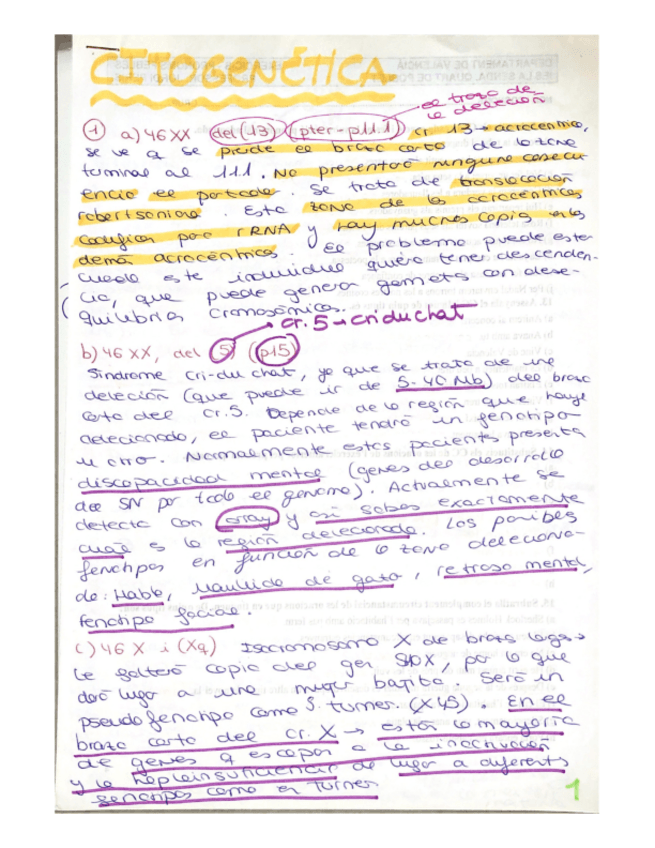 CITOGENÉTICA
el trozo de la deleción
① a) 46 XX del (13) (pter-p11.1) cr 13 → acrocéntrico,
se ve q se pierde el brazo corto de la zona
terminal al 11.1. No presentará ninguna consecu
encia el portador. Se trata de translocación
robertsoniana. Esta zona de los acrocéntricos
codifica para rRNA y hay muchas copias en los
demás acrocéntricos. El problema puede estar
cuando este individuo quiera tener descenden-
cia, que puede generar gametos con dese-
quilibrios cromosómicos.
cr. 5 → cri du chat
b) 46 XX, del (5) (p15)
Síndrome Cri-du chat, ya que se trata de una
deleción (que puede ir de 5-40 Mb) del brazo
corto del cr. 5. Depende de la región que haya
delecionado, el paciente tendrá un fenotipo
u otro. Normalmente estos pacientes presenta
discapacidad mental (genes del desarrollo
del SN por todo el genoma). Actualmente se
detecta con array y así sabes exactamente
cuál es la región delecionada. Los posibles
fenotipos en función de la zona deleciona-
da: Habla, Maullido de gato, retraso mental,
fenotipo facial.
c) 46 X i (Xq) Isocromosoma X de brazo largo →
Le faltará copia del gen SHOX, por lo que
dará lugar a una mujer bajita. Será un
pseudofenotipo como S. Turner. (X45). En el
brazo corto del cr. X → están la mayoría
de genes q escapan a la inactivación
y la haploinsuficiencia da lugar a diferents
fenotipos como en Turner
1